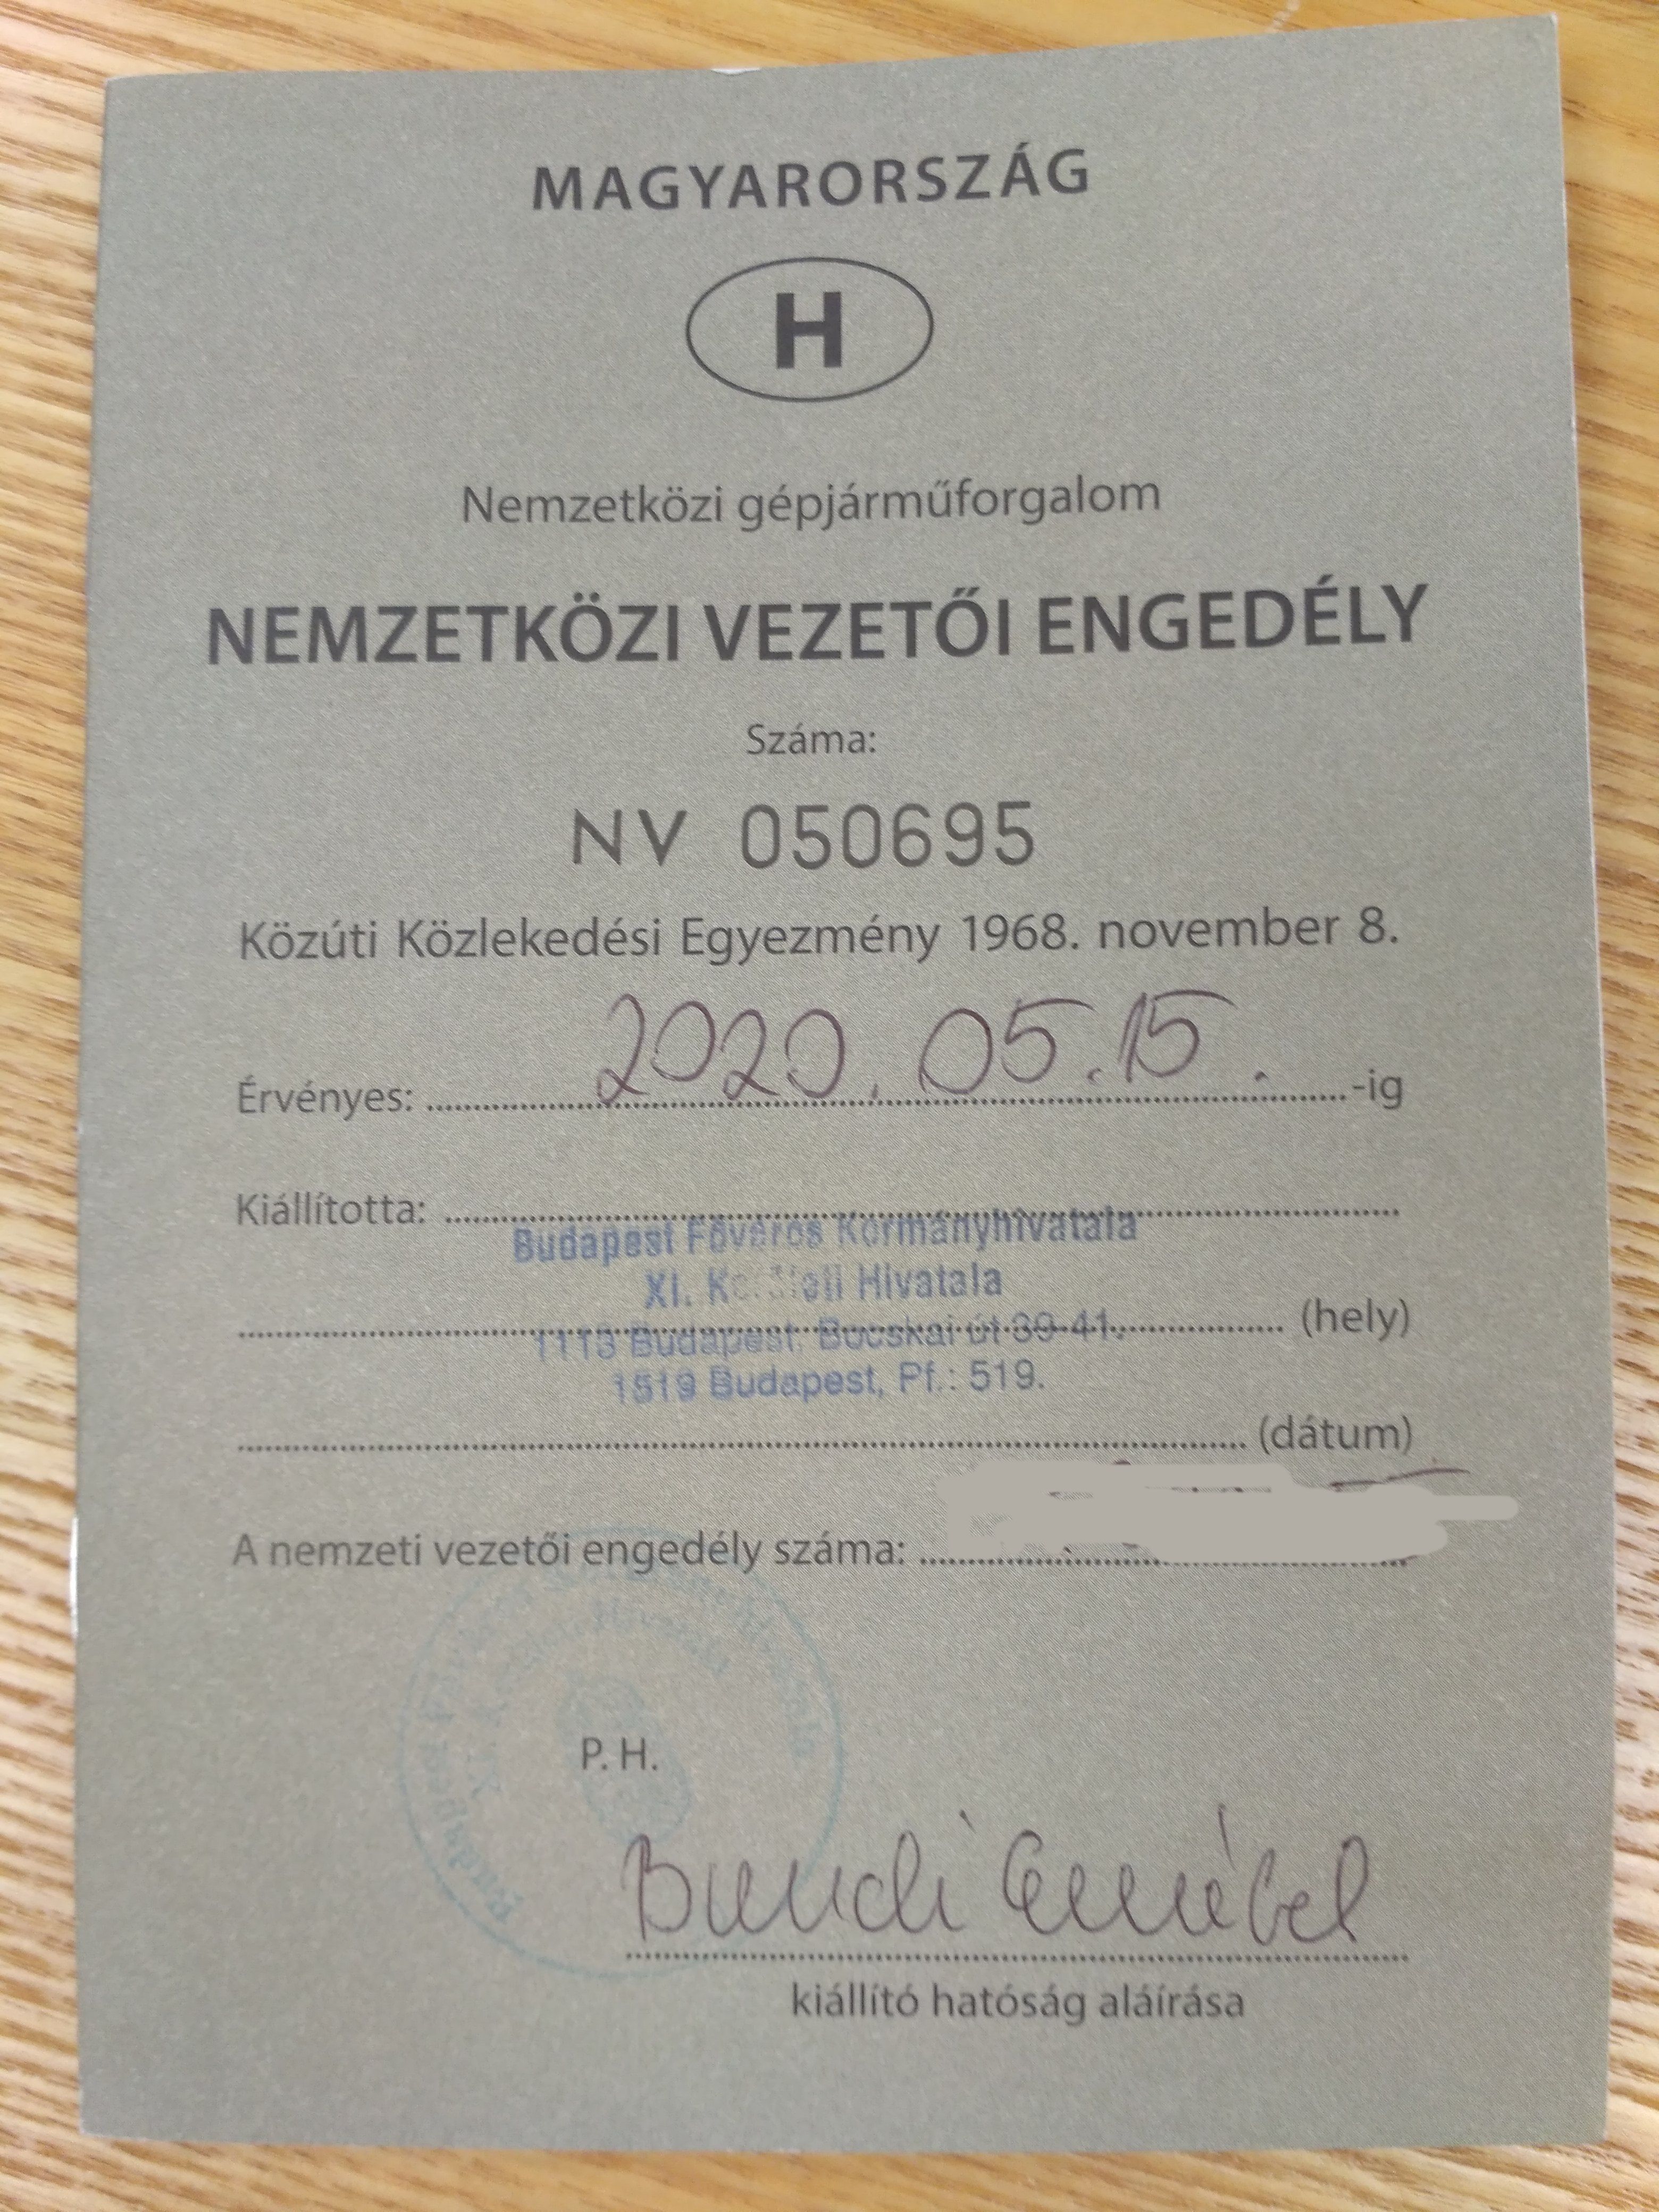 MAGYARORSZÁG
H
Nemzetközi gépjárműforgalom
NEMZETKÖZI VEZETŐI ENGEDÉLY
Száma:
NV 050695
Közúti Közlekedési Egyezmény 1968. november 8.
Érvényes: 2020. 05. 15. -ig
Kiállította:
Budapest Főváros Kormányhivatala
XI. Kerületi Hivatala
(hely)
1113 Budapest, Bocskai út 39-41.
1519 Budapest, Pf.: 519.
(dátum)
A nemzeti vezetői engedély száma:
P. H.
kiállító hatóság aláírása